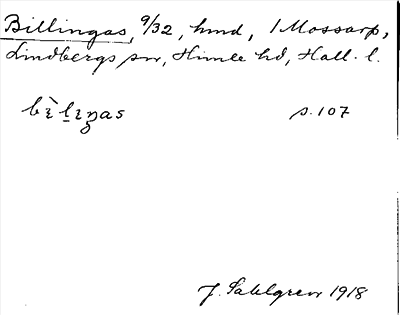 Billingas, 9/32, hmd, 1 Mossarp,
Lindbergs sn, Himle hd, Hall. l.
s. 107
J. Sahlgren 1918